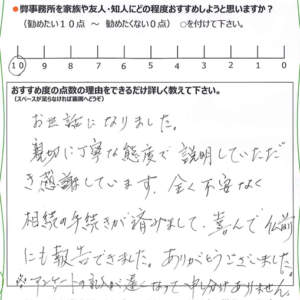 ●弊事務所を家族や友人・知人にどの程度おすすめしようと思いますか？
（勧めたい１０点 ～ 勧めたくない０点） ○を付けて下さい。
10 9 8 7 6 5 4 3 2 1 0
おすすめ度の点数の理由をできるだけ詳しく教えて下さい。
（スペースが足らなければ裏面へどうぞ）
お世話になりました。
親切に丁寧な態度で説明していただ
き感謝しています。全く不安なく
相続の手続きが済みまして、喜んで仏前
にも報告できました。ありがとうございました。
※アンケートの記入が遅くなって申し分けありません。